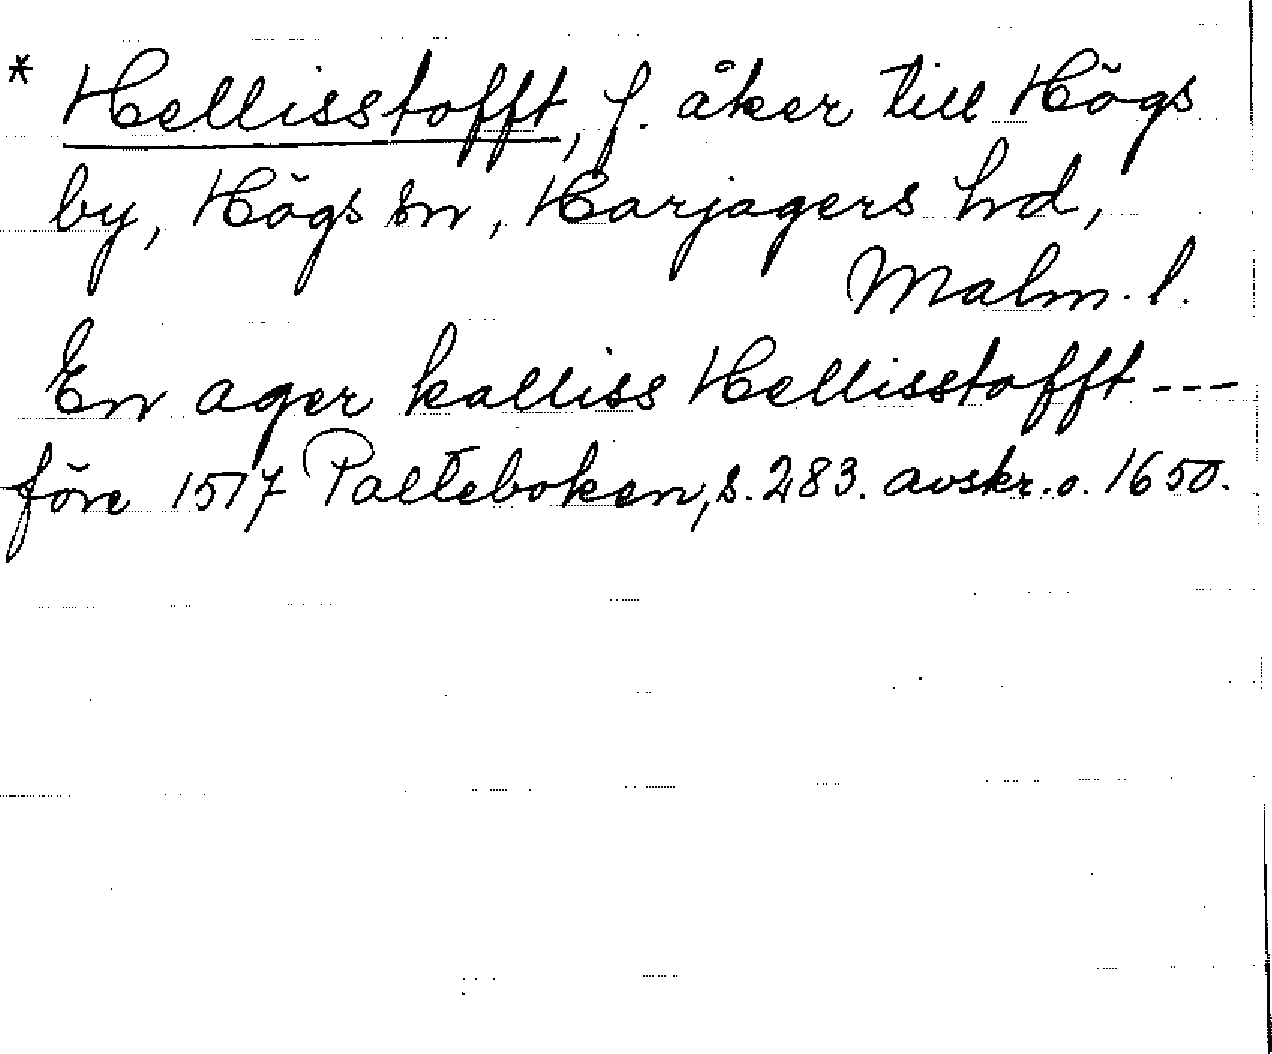 * Hellisstofft, f. åker till Högs
by, Högs sn, Harjagers hd,
Malm. l.
En ager kalliss Hellisstofft ---
före 1517 Palteboken, s. 283. avskr. o. 1650.